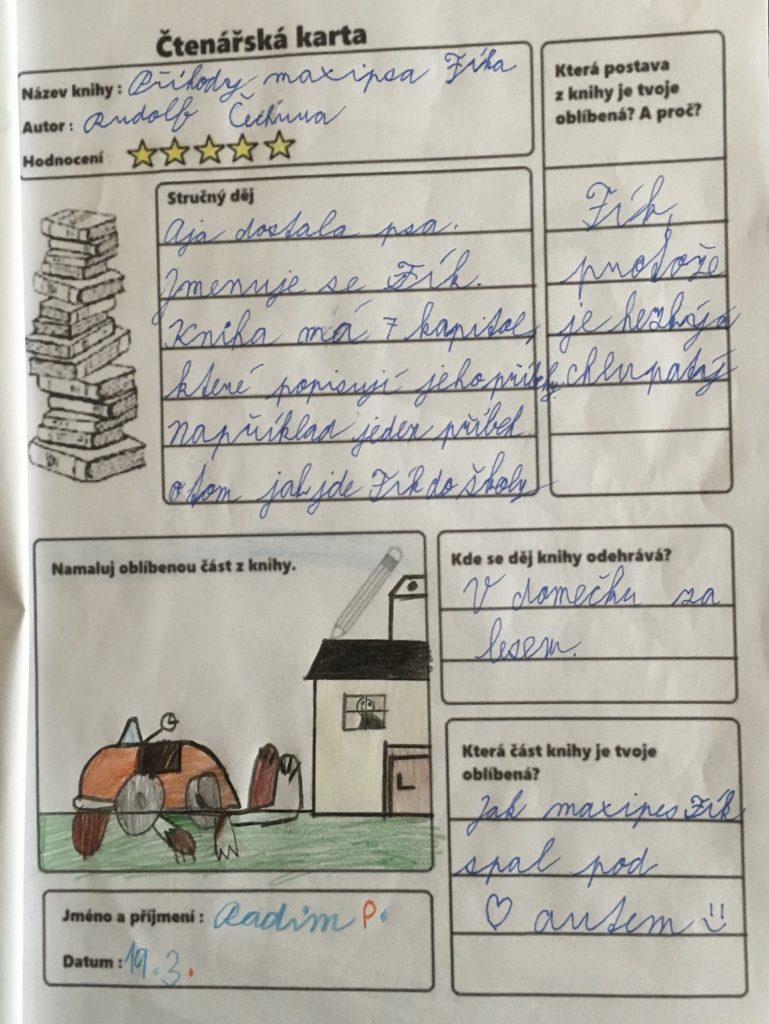 Čtenářská karta
Název knihy : Příhody maxipsa Fíka
Autor : Rudolf Čechura
Hodnocení
Která postava
z knihy je tvoje
oblíbená? A proč?
Fík,
protože
je hezký a
chlupatý
Stručný děj
Aja dostala psa.
Jmenuje se Fík.
Kniha má 7 kapitol,
které popisují jeho příběhy.
Například jeden příběh
o tom jak jde Fík do školy
Namaluj oblíbenou část z knihy.
Kde se děj knihy odehrává?
V domečku za
lesem.
Která část knihy je tvoje
oblíbená?
Jak maxipes Fík
spal pod
♡ autem
Jméno a příjmení : Radim P.
Datum : 19.3.